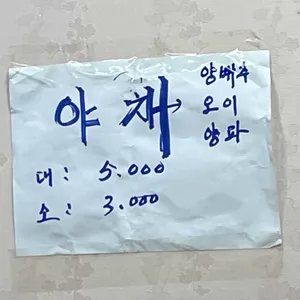 야채→
양배추
오이
양파
대: 5.000
소: 3.000